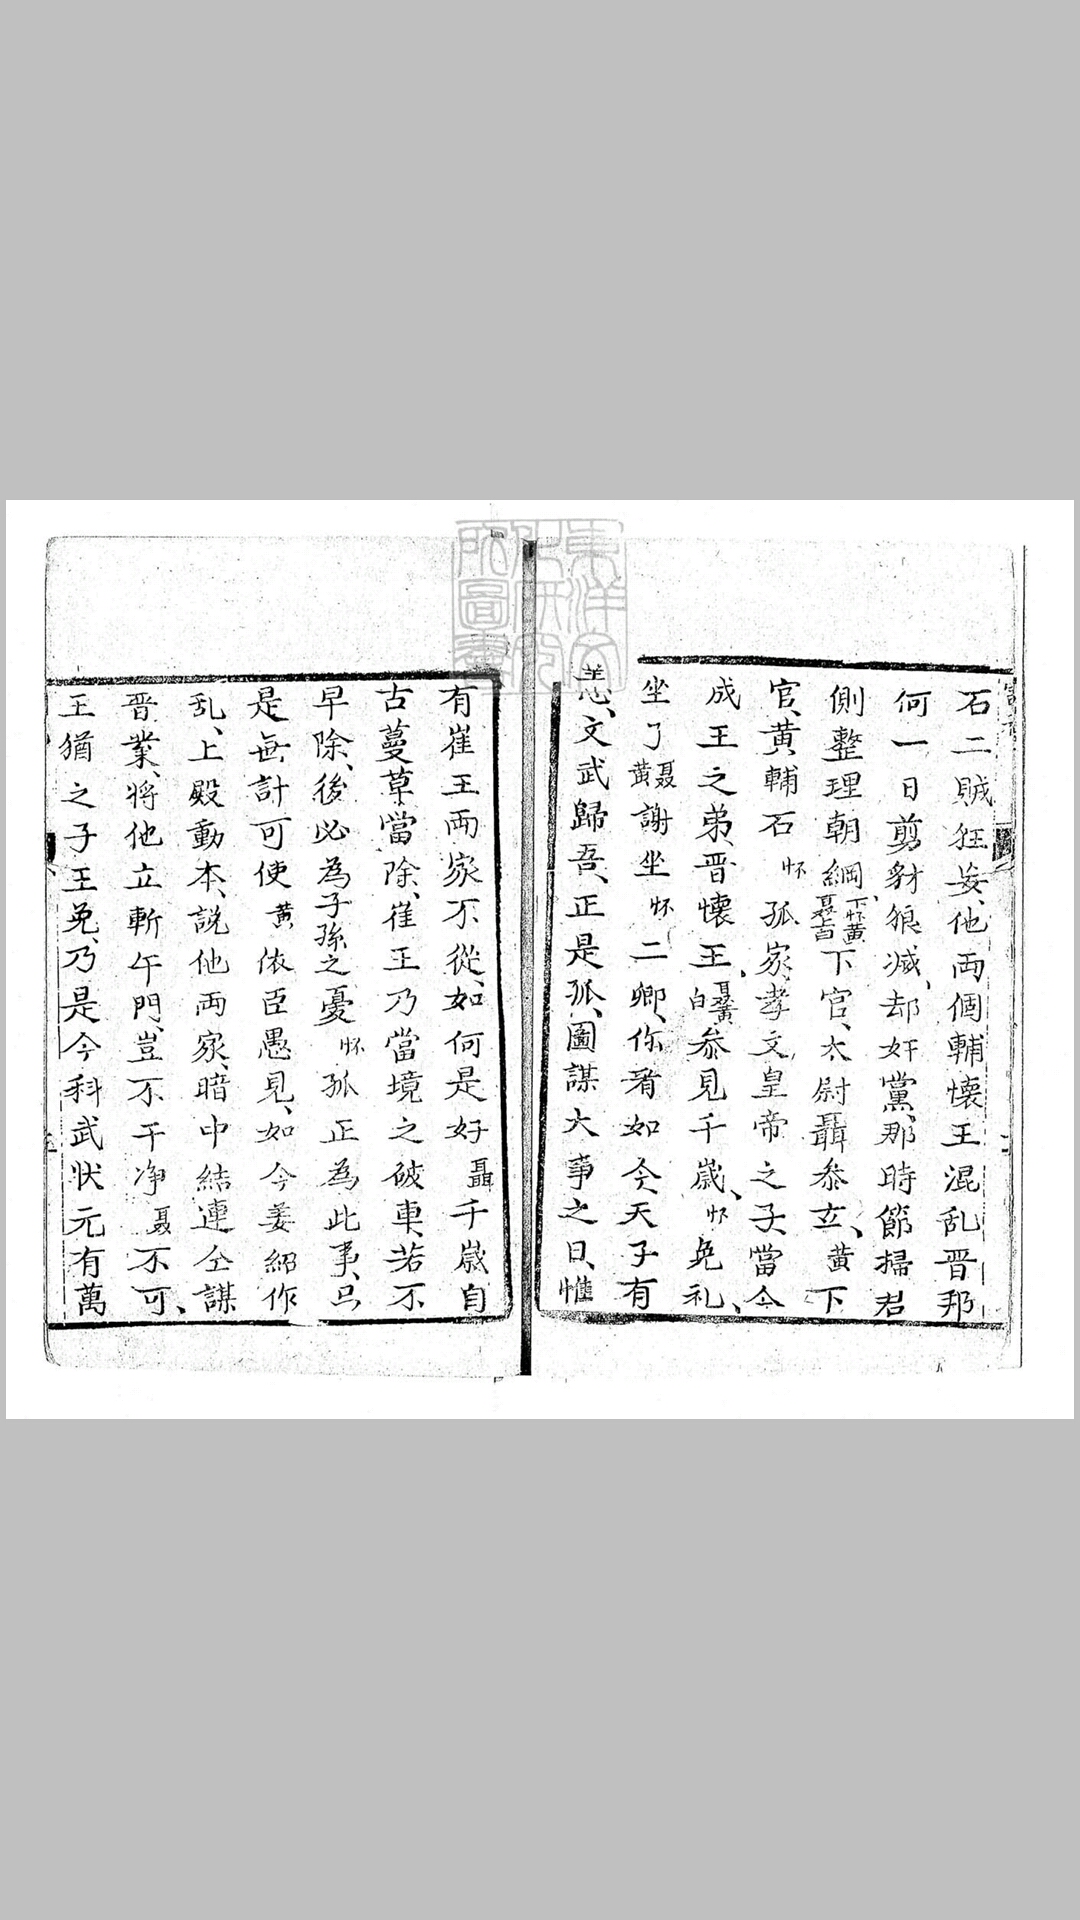 石二賊狂妄、他両個輔懐王混乱晋邦
何一日剪豺狼减、却奸黨、那時節掃君
側整理朝綱、下怀黄聶上白下官、太尉聶叅立、黄下
官、黄輔石怀孤家孝文皇帝之子、當今
成王之弟、晋懷王、聶黄白叅見千歲、怀免礼、
坐了聶黄謝坐怀二卿、你看如今天子有
恙、文武歸吾、正是孤、圖謀大事之日、惟
有崔王両家不從、如何是好聶千歲自
古蔓草當除、崔王乃當境之破車、若不
早除、後必為子孫之憂怀孤正為此事、只
是無計可使黄依臣愚見、如今姜紹作
乱、上殿動本、説他両家、暗中結連仝謀
晋業、将他立斬午門、豈不干净聶不可、
王猶之子王免、乃是今科武状元有萬
東洋文化研究所圖書